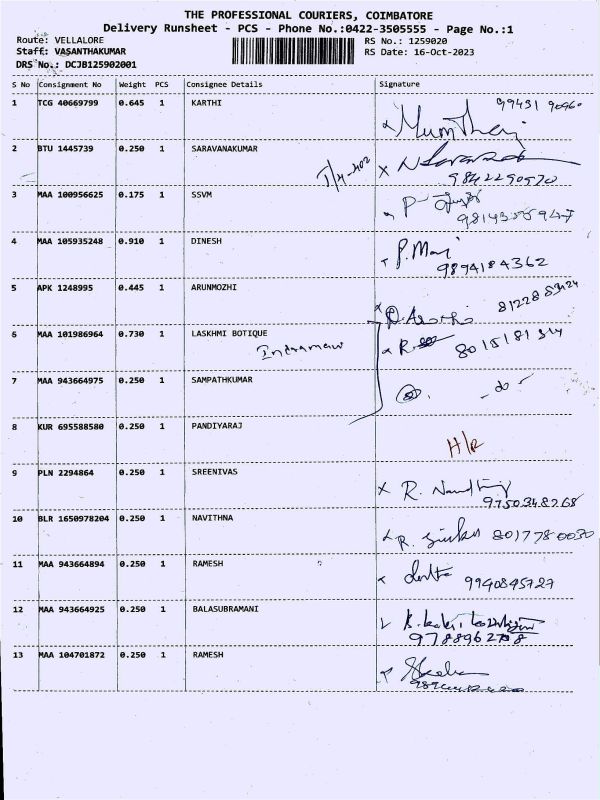 THE PROFESSIONAL COURIERS, COIMBATORE
Delivery Runsheet - PCS - Phone No.:0422-3505555 - Page No.:1
Route: VELLALORE
Staff: VASANTHAKUMAR
DRS No.: DCJB125902001
RS No.: 1259020
RS Date: 16-Oct-2023
S No Consignment No Weight PCS Consignee Details Signature
1 TCG 40669799 0.645 1 KARTHI
2 BTU 1445739 0.250 1 SARAVANAKUMAR
9842290570
3 MAA 100956625 0.175 1 SSVM
4 MAA 105935248 0.910 1 DINESH
P. Mani
9894184362
5 APK 1248995 0.445 1 ARUNMOZHI
6 MAA 101986964 0.730 1 LASKHMI BOTIQUE
7 MAA 943664975 0.250 1 SAMPATHKUMAR
- do -
8 KUR 695588580 0.250 1 PANDIYARAJ
9 PLN 2294864 0.250 1 SREENIVAS
9750348268
10 BLR 1650978204 0.250 1 NAVITHNA
8017780030
11 MAA 943664894 1 0.250 1 RAMESH
9940845727
12 MAA 943664925 0.250 1 BALASUBRAMANI
13 MAA 104701872 0.250 1 RAMESH